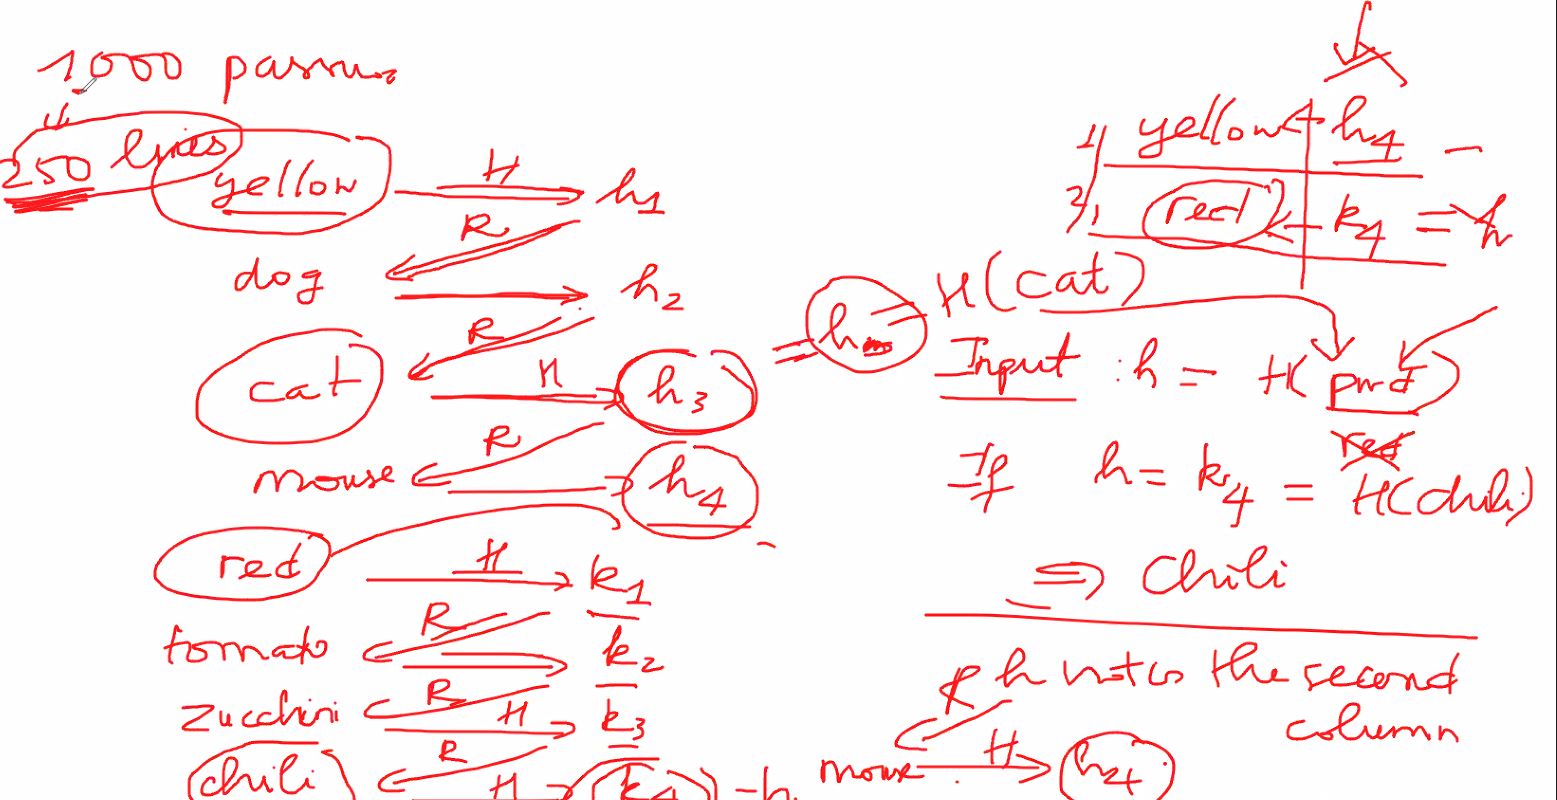 1000
250 lines
yellow H h1
R
dog h2
R
cat H h3 = h
R
mouse h4
red H k1
R
tomato k2
R
zucchini H k3
R
chili H k4 = h
1) yellow ← h4
red ← k4 = h
H(cat)
Input : h = H(pwd)
red
If h = k4 = H(chili)
⇒ chili
h not in the second
column
R
mouse H h4